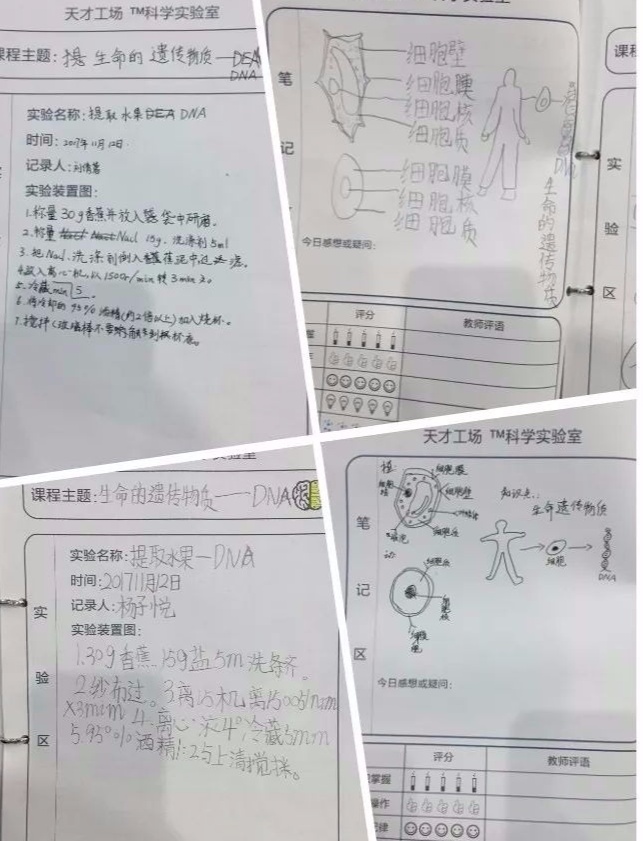 天才工场 ™科学实验室
课程主题: 提 生命的遗传物质——DEA
DNA
实验名称: 提取水果DEA DNA
时间: 2017年11月12日
记录人:
实验装置图:
1.称量30g香蕉并放入袋中研磨。
2.称量 NaCl 15g, 洗涤剂5ml
3.把NaCl、洗涤剂倒入香蕉泥中过滤。
4.放入离心机,以1500r/min转3min
5.冷藏5min。
6.将冷却的95%酒精(约2倍以上)加入烧杯。
7.搅拌(玻璃棒不要
笔
记
细胞壁
细胞膜
细胞核
细胞质
细胞膜
细胞核
细胞质
DNA
生命的遗传物质
今日感想或疑问:
评分
教师评语
课程
实
验
区
课程主题: 生命的遗传物质——DNA
实验名称: 提取水果—DNA
时间: 201711月12日
记录人: 杨子悦
实验装置图:
实
验
区
1.30g香蕉.15g盐5m洗条齐。
2纱布过。3离心机离1500r/mm
X3mim 4.离心液4°冷藏5mm
5.95%酒精1:2与上清搅拌。
天才工场 ™科学实验室
笔
记
区
植:
细胞膜
细胞壁
细胞核
叶绿体
液泡
细胞质
动
细胞质
细胞核
细胞膜
知识点:
生命遗传物质
细胞
DNA
今日感想或疑问:
评分
教师评语
掌握
操作
纪律